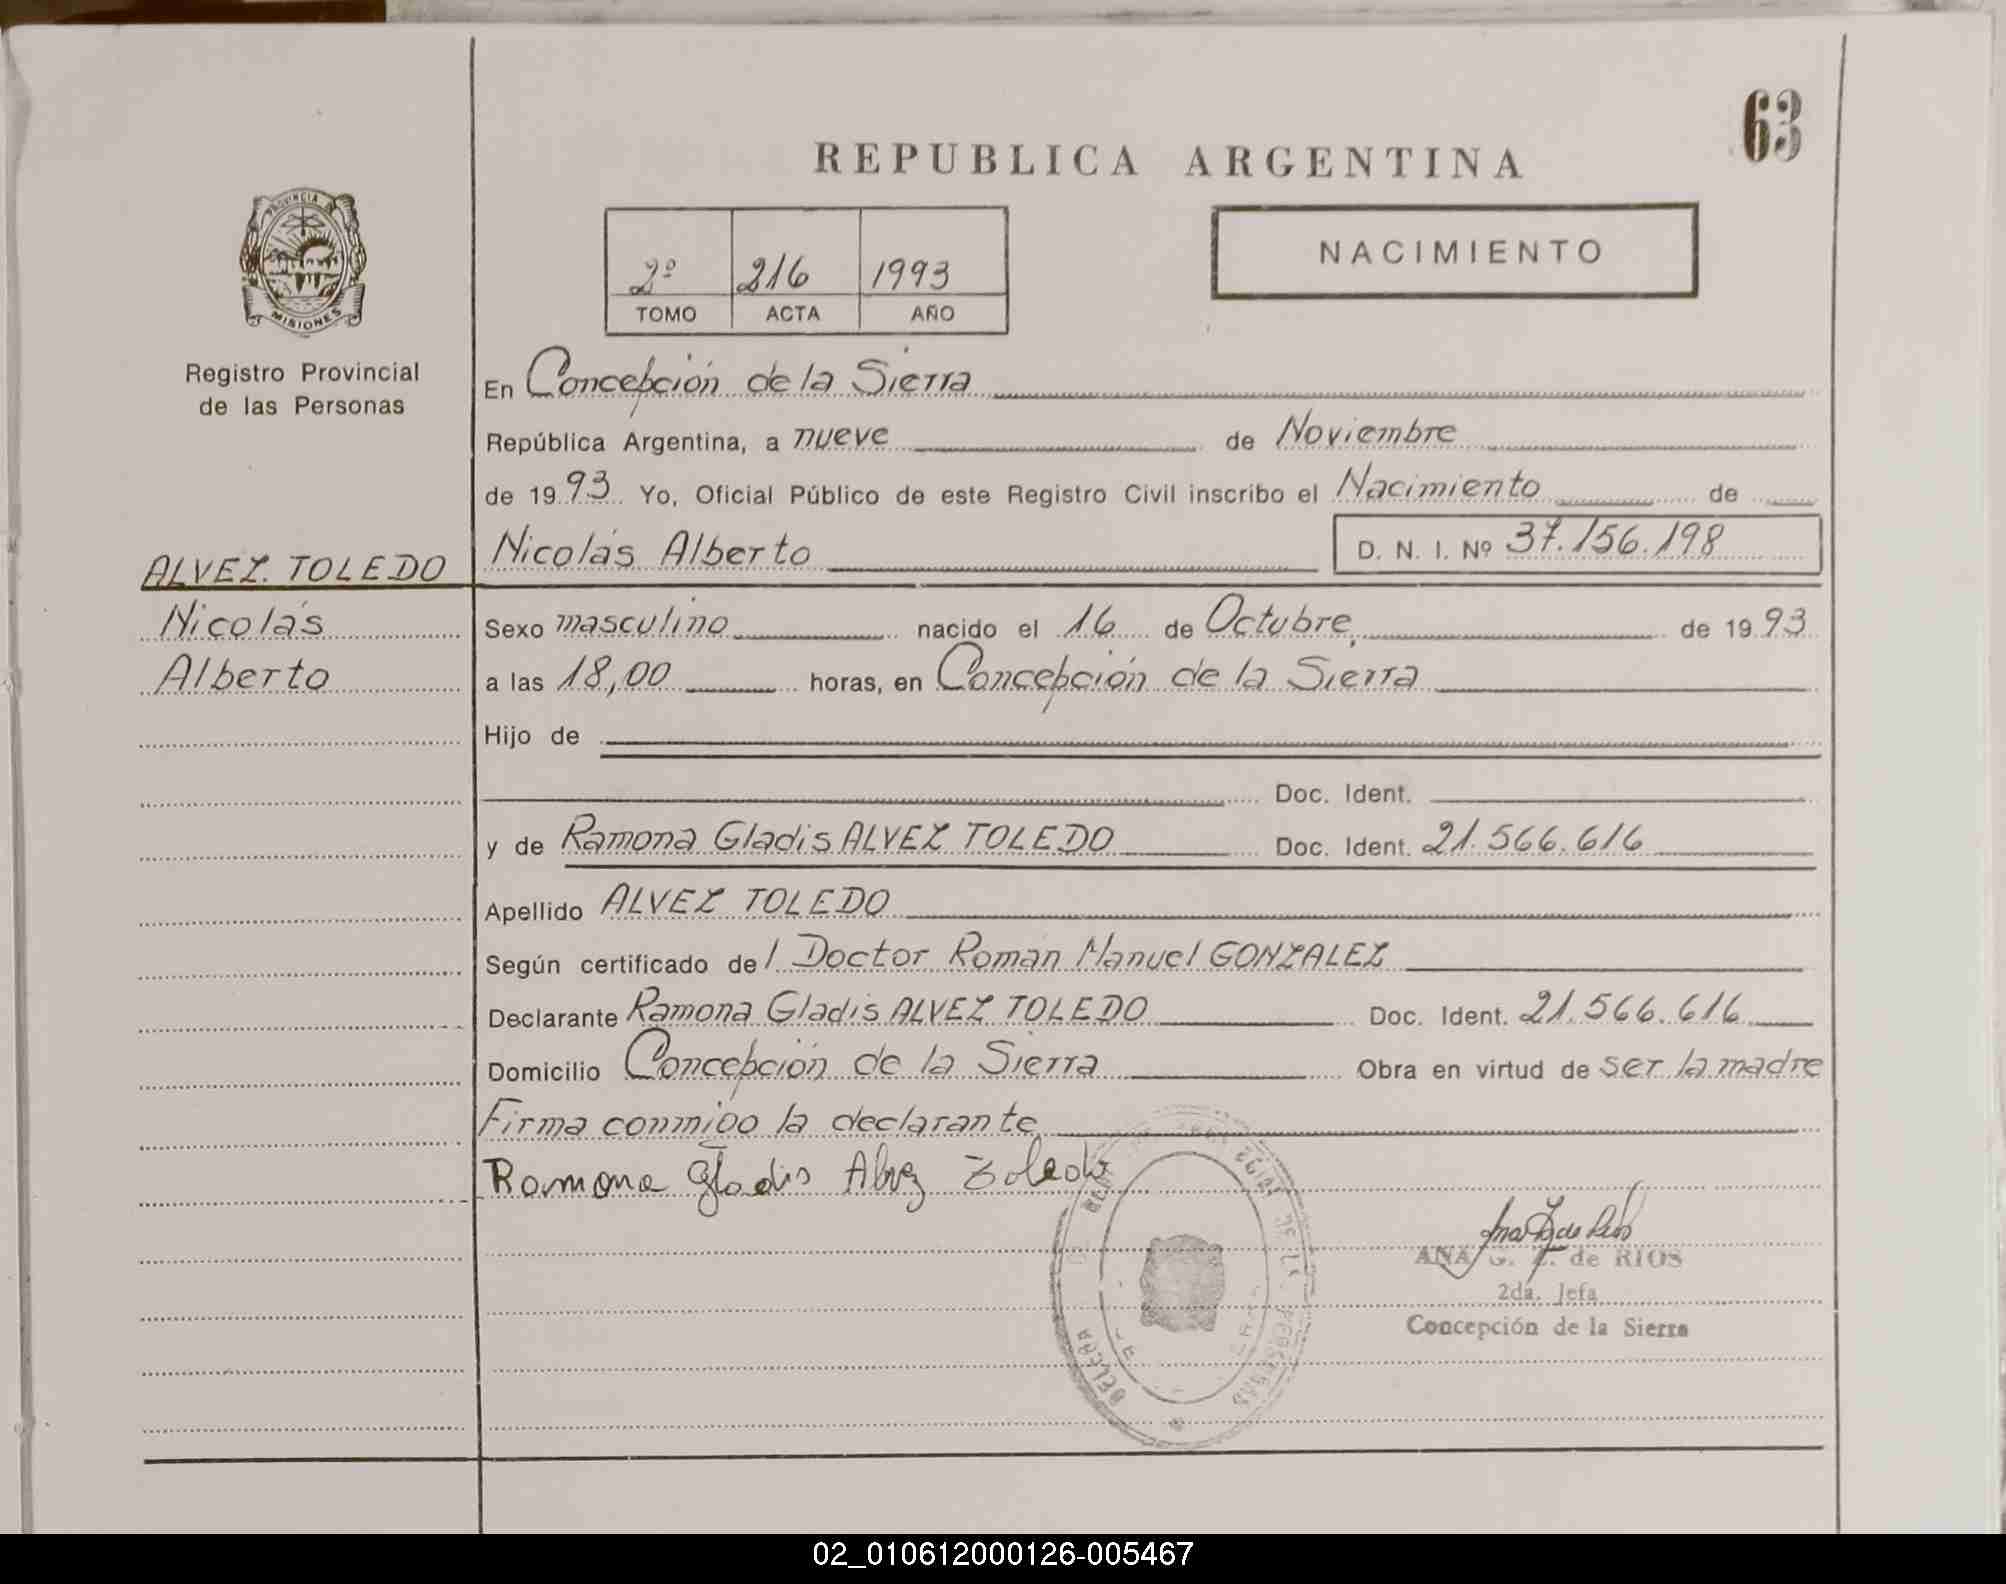 63
REPUBLICA ARGENTINA
PROVINCIA DE
MISIONES
2º 216 1993
TOMO ACTA AÑO
NACIMIENTO
Registro Provincial
de las Personas
En Concepción de la Sierra
República Argentina, a nueve de Noviembre
de 1993 Yo, Oficial Público de este Registro Civil inscribo el Nacimiento de
Nicolás Alberto D. N. I. Nº 37.156.198
ALVEZ TOLEDO
Nicolás
Alberto
Sexo masculino nacido el 16 de Octubre, de 1993
a las 18,00 horas, en Concepción de la Sierra
Hijo de
Doc. Ident.
y de Ramona Gladis ALVEZ TOLEDO Doc. Ident. 21.566.616
Apellido ALVEZ TOLEDO
Según certificado del Doctor Roman Manuel GONZALEZ
Declarante Ramona Gladis ALVEZ TOLEDO Doc. Ident. 21.566.616
Domicilio Concepción de la Sierra Obra en virtud de ser la madre
Firma conmigo la declarante
Ramona Gladis Alvez Toledo
ANA G. Z. de RIOS
2da. Jefa
Concepción de la Sierra
DE LAS PERSONAS
02_010612000126-005467